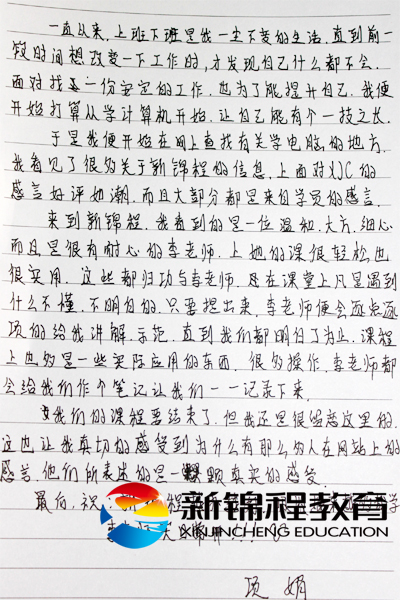 一直从来，上班下班是我一尘不变的生活，直到前一
段时间想改变一下工作时，才发现自己什么都不会，
面对找一份安定的工作，也为了能提升自己，我便
开始打算从学计算机开始，让自己能有个一技之长。
于是我便开始在网上查找有关学电脑的地方，
我看见了很多关于新锦程的信息，上面对XJC的
感言好评如潮，而且大部分都是来自学员的感言。
来到新锦程，我看到的是一位温和，大方，细心
而且是很有耐心的李老师，上她的课很轻松，也
很实用，这些都归功与李老师，是在课堂上凡是遇到
什么不懂，不明白的，只要提出来，李老师便会逐点逐
项的给我讲解，示范，直到我们都明白了为止，课程
上也多是一些实际应用的东西，很多操作，李老师都
会给我们作个笔记让我们一一记录下来。
我们的课程要结束了，但我还是很留恋这里的，
这也让我真切的感受到为什么有那么多人在网站上的
感言，他们所表述的是一颗颗真实的感受。
最后，祝
新锦程教育
XINJINCHENG EDUCATION
项娟